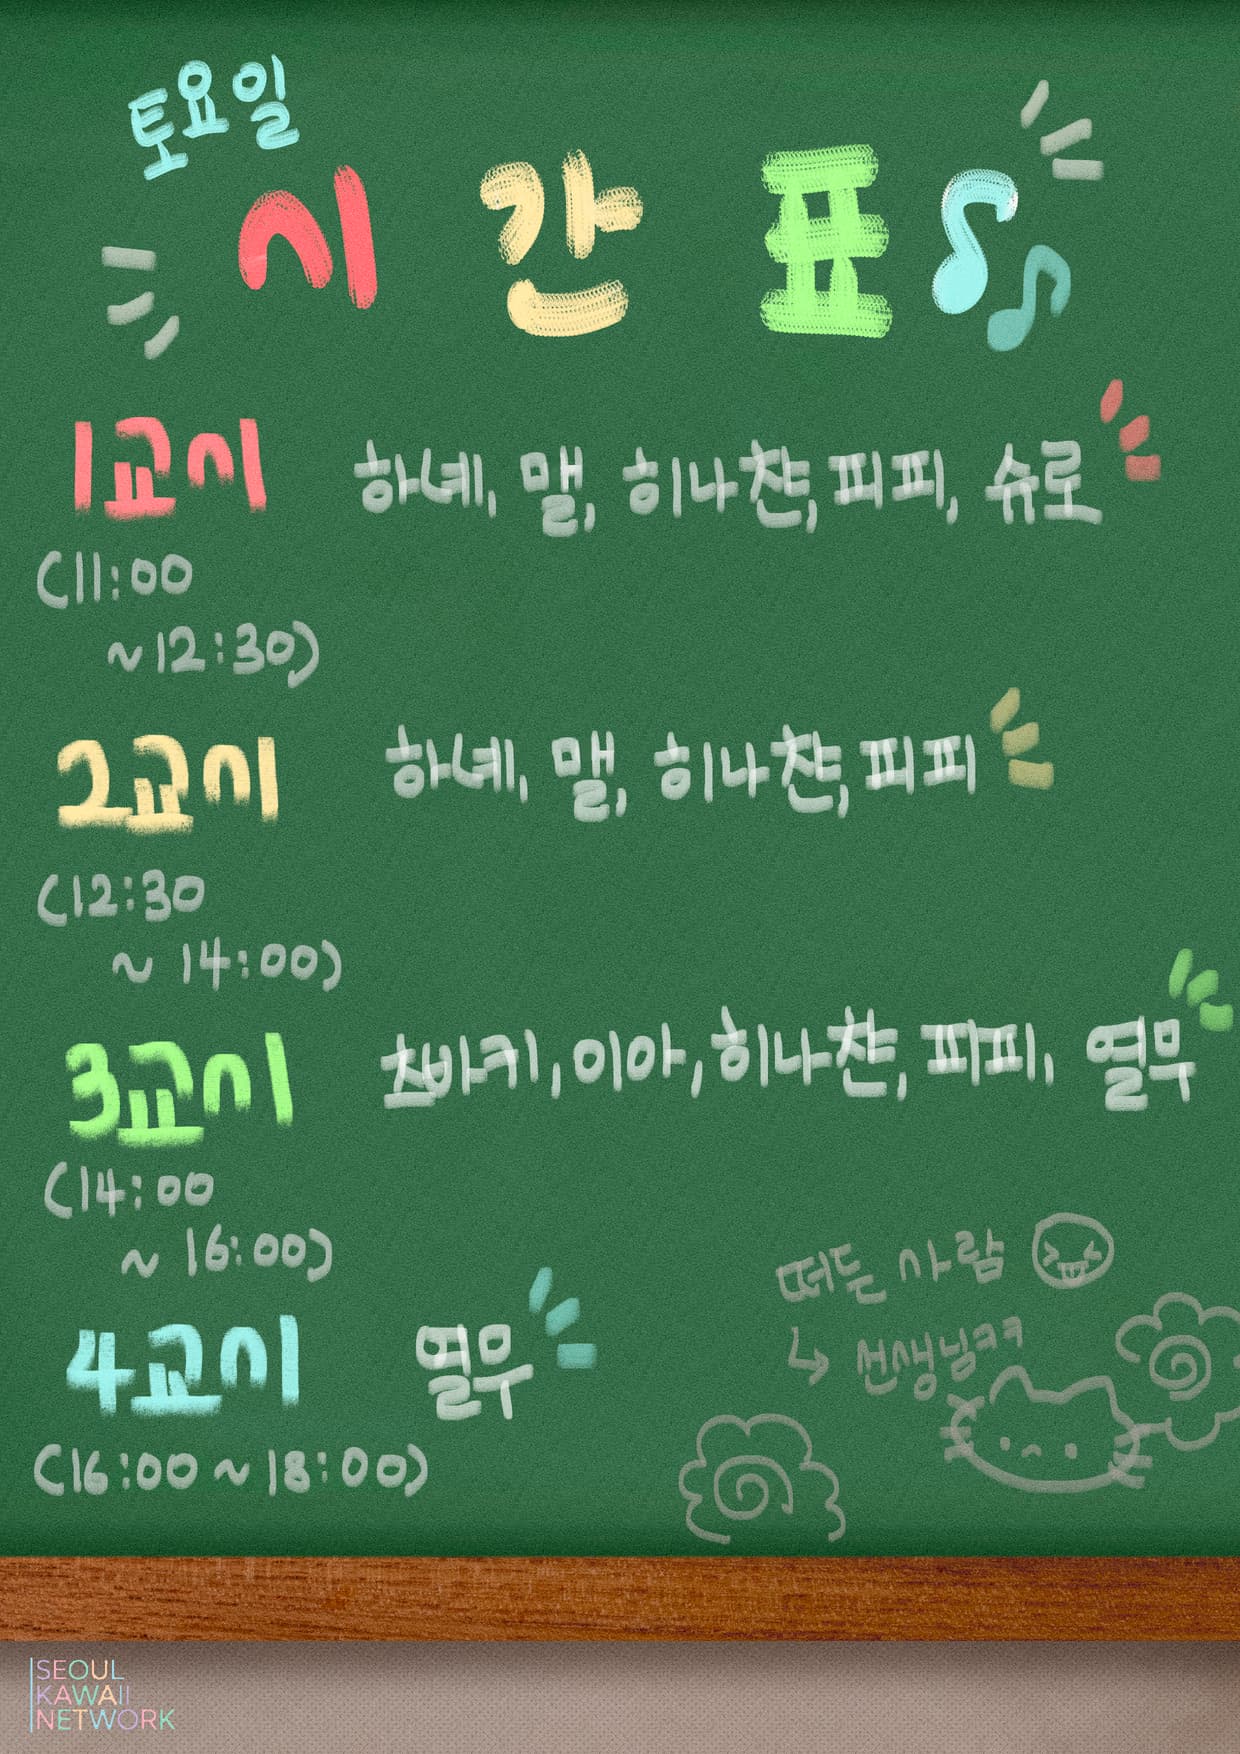 토요일
시간표
1교시
하네, 맬, 히나쨘, 피피, 슈로
(11:00
~12:30)
2교시
하네, 맬, 히나쨘, 피피
(12:30
~14:00)
3교시
이아, 히나쨘, 피피, 열무
(14:00
~16:00)
4교시
열무
(16:00~18:00)
떠든 사람
선생님ㅋㅋ
SEOUL
KAWAII
NETWORK